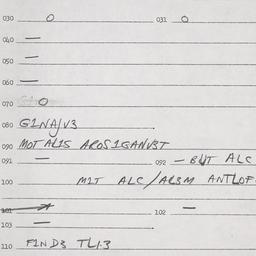 030 0 031 0
040 —
050 —
060 —
070 0
080 GINA/V3
090 MOT AL1S AROS1GANV3T
091 — 092 — BUT ALC
100 M1T ALC / AR3M ANTLOF
101 102 —
103 —
110 F1ND3 TL1.3